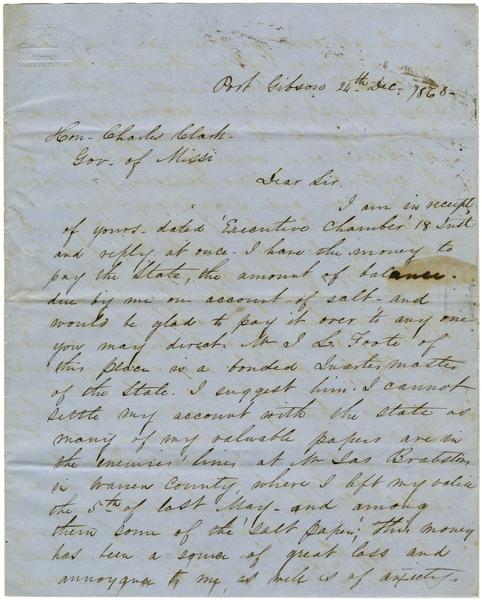 Port Gibson 24th Dec. 1863-
Hon- Charles Clark-
Gov- of Missi
Dear Sir.
I am in receipt
of yours- dated 'Executive Chamber' 18 Inst
and reply at once. I have the money to
pay the State, the amount of balance.
due by me on account of salt- and
would be glad to pay it over to any one
you may direct. Mr J L Foote of
this place is a bonded Quarter master
of the State. I suggest him. I cannot
settle my account with the state as
many of my valuable papers are in
the enemies' lines at Mr Jas
in Warren County, where I left my valise
the 5th of last May- and among
them some of the 'Salt paper', This money
has been a source of great loss and
annoyance to me, as well as of anxiety.